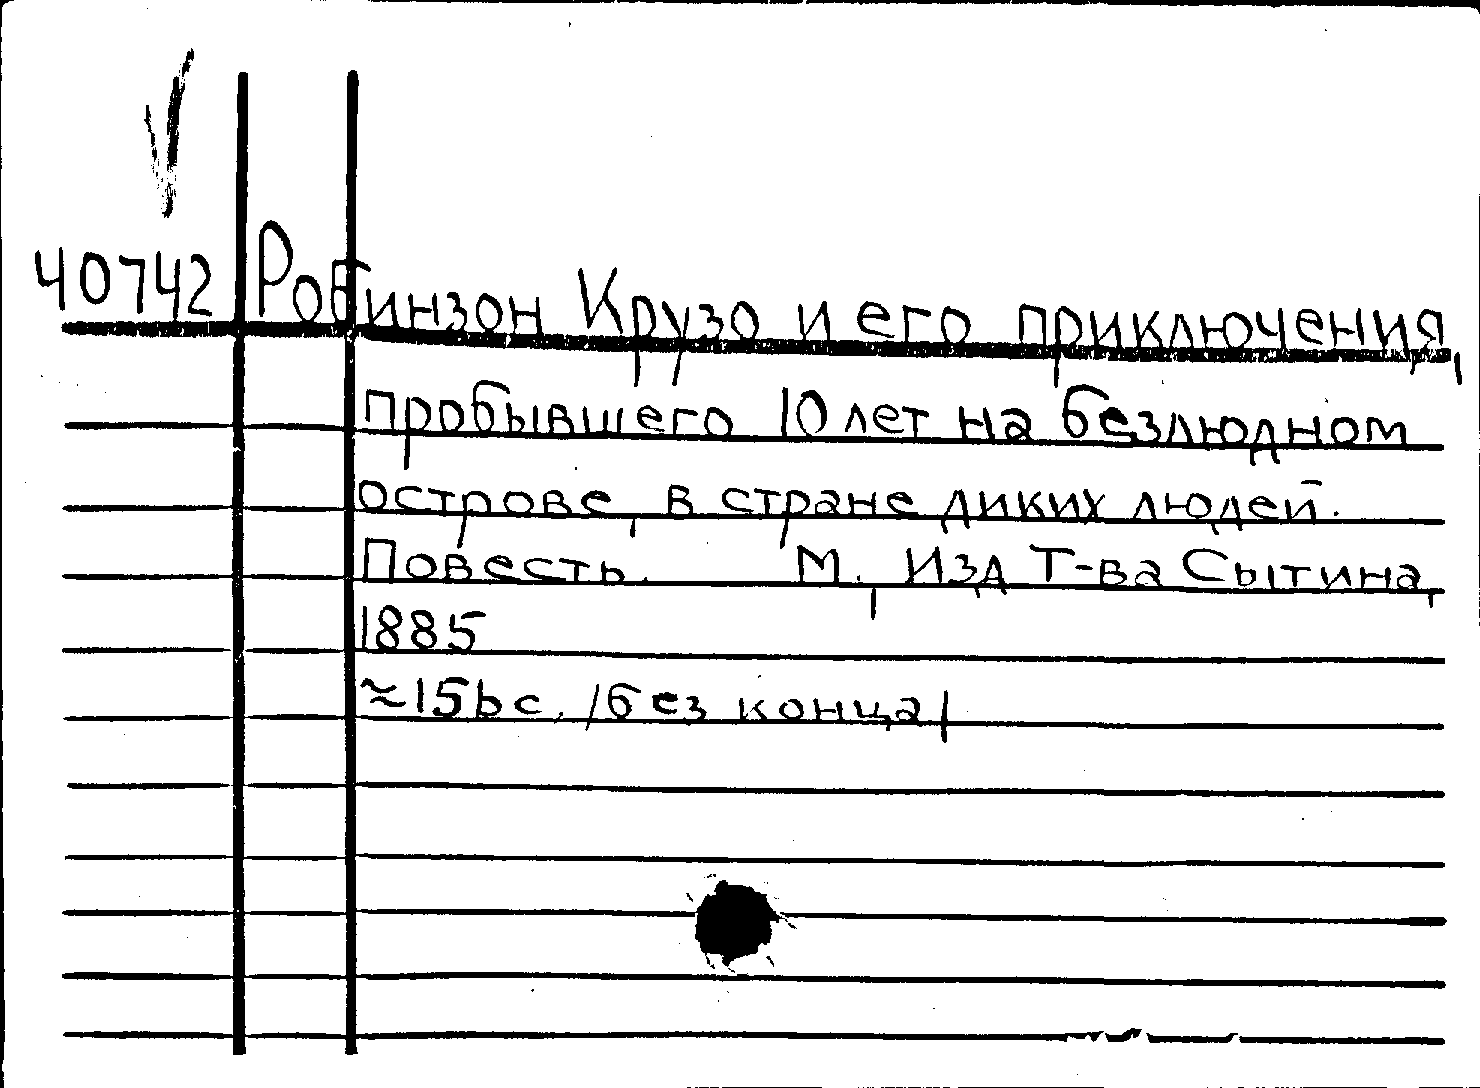 40742 Робинзон Крузо и его приключения,
пробывшего 10 лет на безлюдном
острове, в стране диких людей.
Повесть. М., Изд Т-ва Сытина,
1885
≈156 с. /без конца/